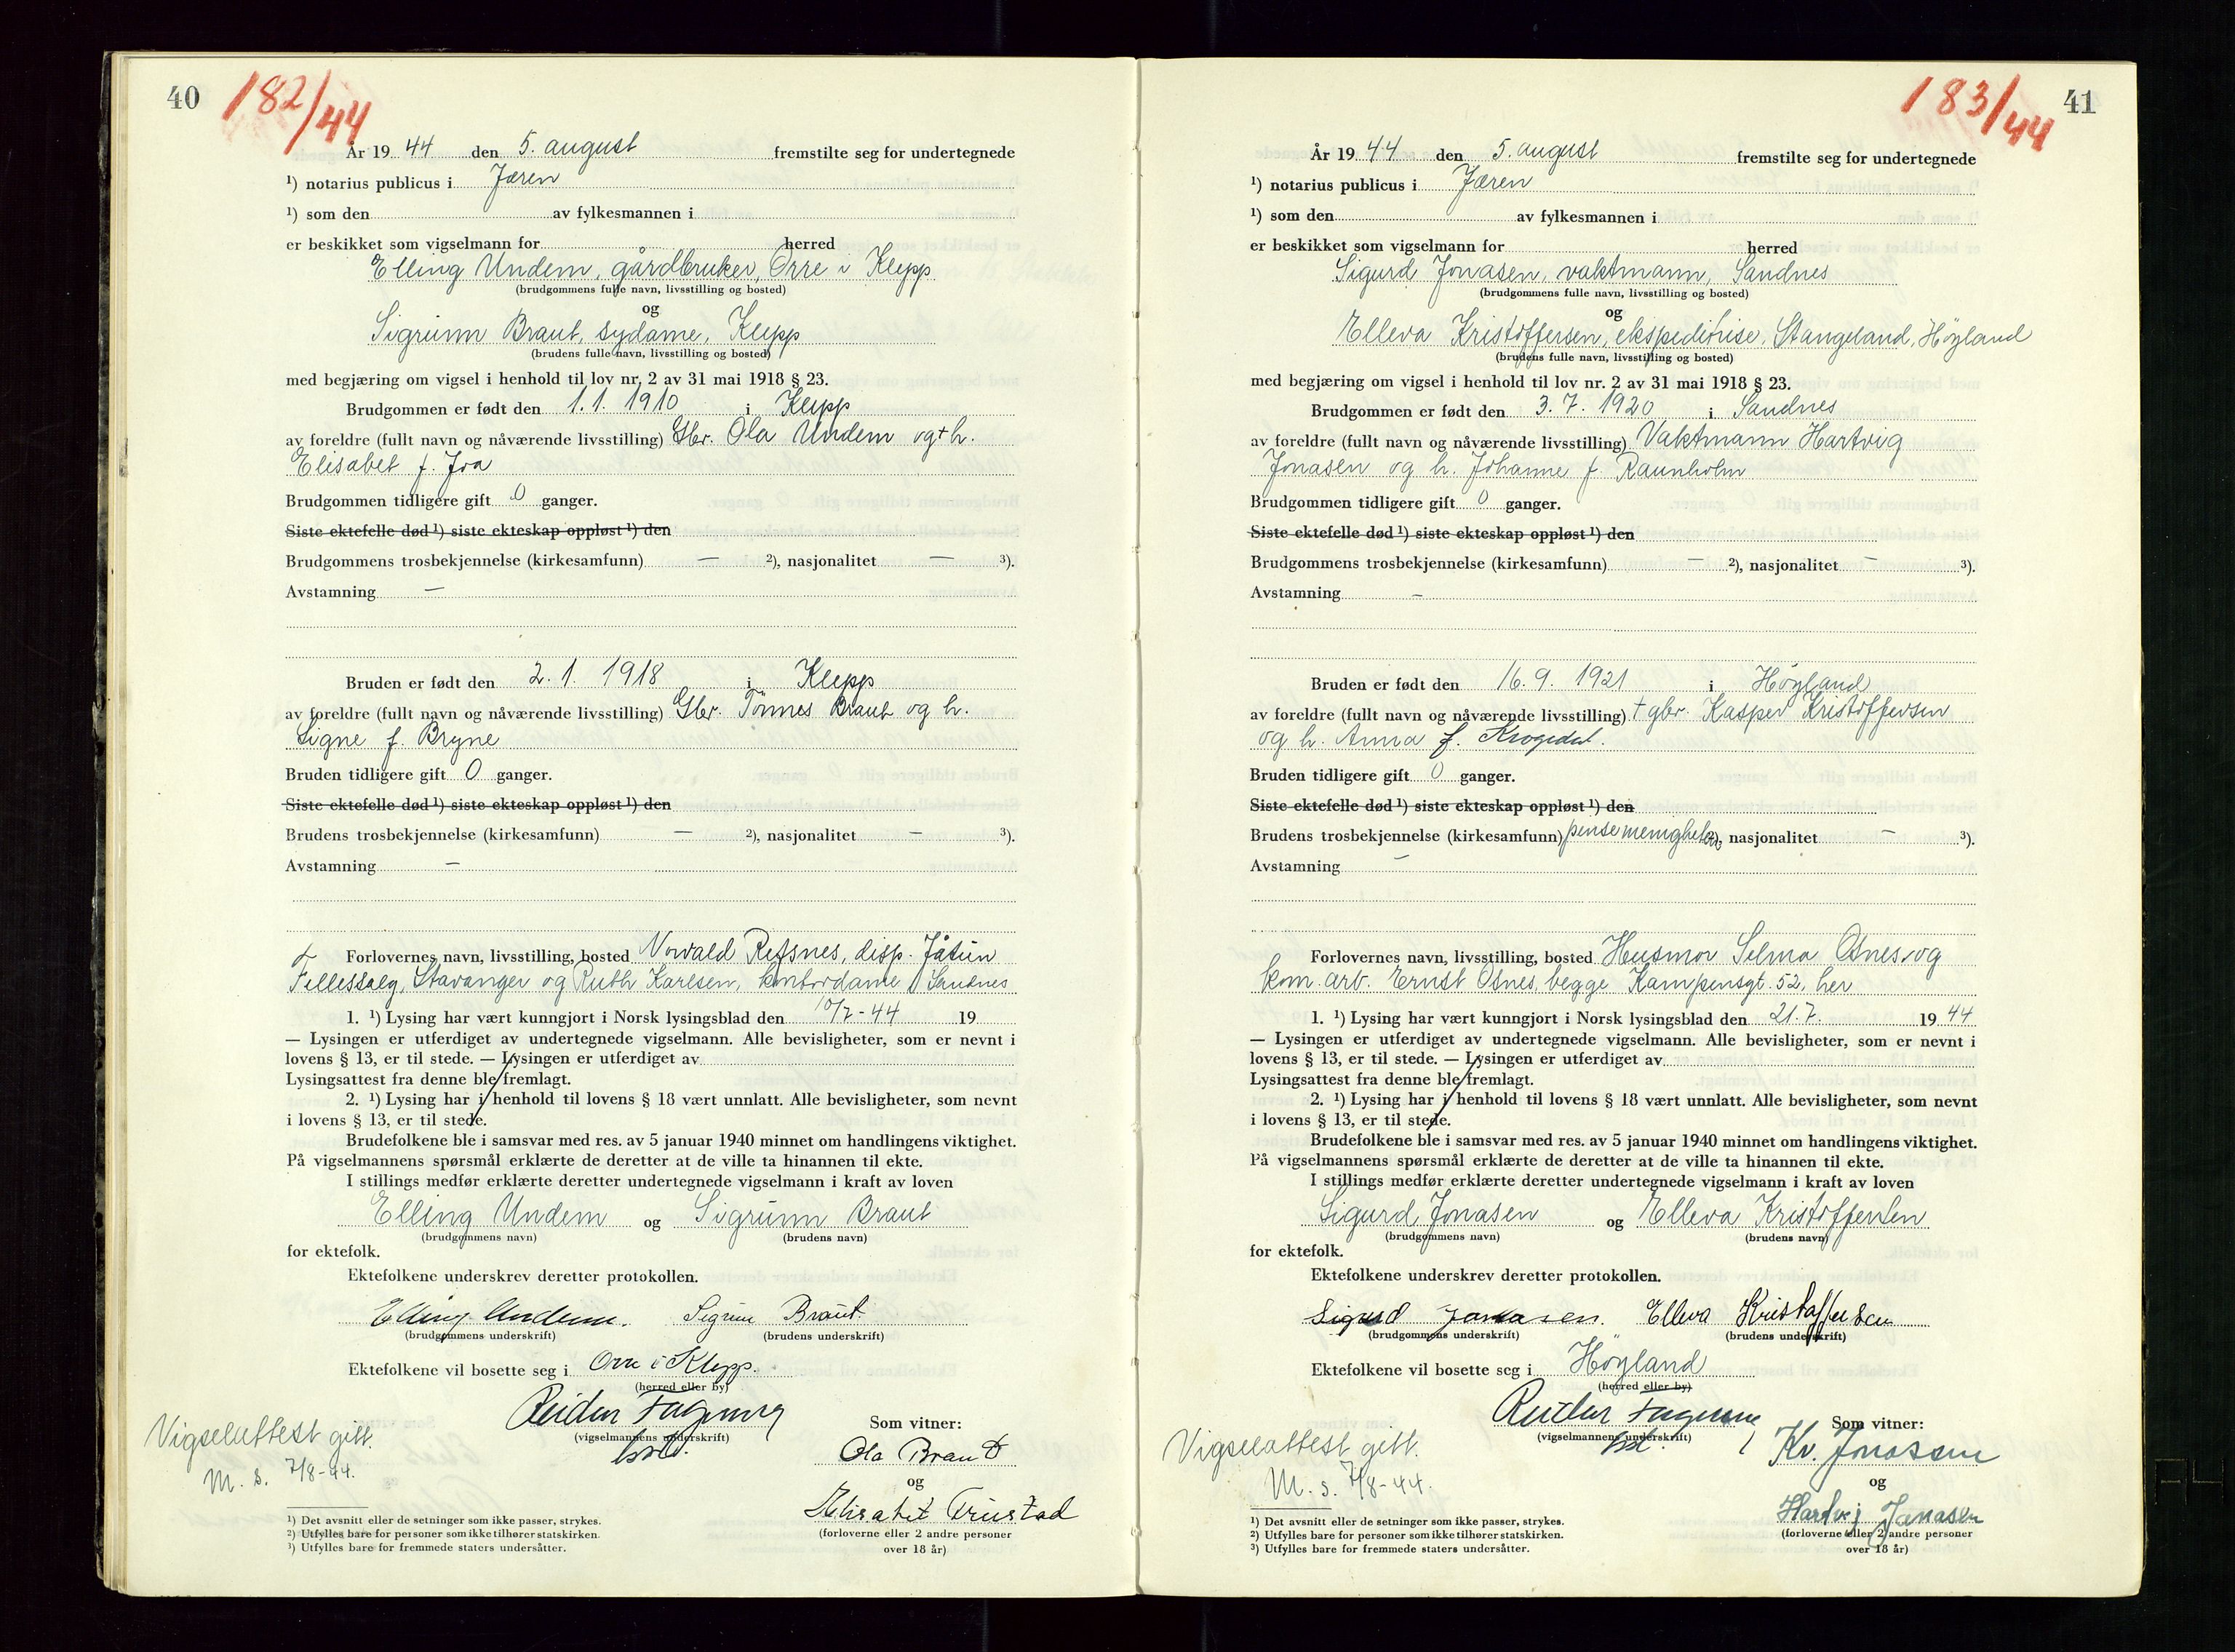 40
182/44
År 19 44 den 5. august fremstilte seg for undertegnede
¹) notarius publicus i Jæren
¹) som den av fylkesmannen i
er beskikket som vigselmann for herred
Elling Undem, gårdbruker, Orre i Klepp
(brudgommens fulle navn, livsstilling og bosted)
og
Sigrunn Braut, sydame, Klepp
(brudens fulle navn, livsstilling og bosted)
med begjæring om vigsel i henhold til lov nr. 2 av 31 mai 1918 § 23.
Brudgommen er født den 1.1. 1910 i Klepp
av foreldre (fullt navn og nåværende livsstilling) Gbr. Ola Undem og + h.
Elisabet f. Joa
Brudgommen tidligere gift 0 ganger.
Siste ektefelle død ¹) siste ekteskap oppløst ¹) den
Brudgommens trosbekjennelse (kirkesamfunn) — ²), nasjonalitet — ³).
Avstamning —
Bruden er født den 2. 1. 1918 i Klepp
av foreldre (fullt navn og nåværende livsstilling) Gbr. Tønnes Braut og h.
Signe f. Bryne
Bruden tidligere gift 0 ganger.
Siste ektefelle død ¹) siste ekteskap oppløst ¹) den
Brudens trosbekjennelse (kirkesamfunn) — ²), nasjonalitet — ³).
Avstamning —
Forlovernes navn, livsstilling, bosted Norvald Refsnes, disp. Jåtun
Fellessalg, Stavanger og Ruth Karlsen, kontordame, Sandnes
1. ¹) Lysing har vært kunngjort i Norsk lysingsblad den 10/7-44 19
— Lysingen er utferdiget av undertegnede vigselmann. Alle bevisligheter, som er nevnt i
lovens § 13, er til stede. — Lysingen er utferdiget av
Lysingsattest fra denne ble fremlagt.
2. ¹) Lysing har i henhold til lovens § 18 vært unnlatt. Alle bevisligheter, som nevnt
i lovens § 13, er til stede.
Brudefolkene ble i samsvar med res. av 5 januar 1940 minnet om handlingens viktighet.
På vigselmannens spørsmål erklærte de deretter at de ville ta hinannen til ekte.
I stillings medfør erklærte deretter undertegnede vigselmann i kraft av loven
Elling Undem og Sigrunn Braut
(brudgommens navn) (brudens navn)
for ektefolk.
Ektefolkene underskrev deretter protokollen.
Elling Undem. Sigrun Braut.
(brudgommens underskrift) (brudens underskrift)
Ektefolkene vil bosette seg i Orre i Klepp.
(herred eller by)
Reidar
(vigselmannens underskrift)
Som vitner:
Ola Braut
og
Elisabet
(forloverne eller 2 andre personer
over 18 år)
Vigselattest gitt.
M. S. 7/8-44.
¹) Det avsnitt eller de setninger som ikke passer, strykes.
²) Utfylles bare for personer som ikke tilhører statskirken.
³) Utfylles bare for fremmede staters undersåtter.
41
183/44
År 19 44 den 5. august fremstilte seg for undertegnede
¹) notarius publicus i Jæren
¹) som den av fylkesmannen i
er beskikket som vigselmann for herred
Sigurd Jonasen, vaktmann, Sandnes
(brudgommens fulle navn, livsstilling og bosted)
og
Elleva Kristoffersen, ekspeditrise, Stangeland, Høyland
(brudens fulle navn, livsstilling og bosted)
med begjæring om vigsel i henhold til lov nr. 2 av 31 mai 1918 § 23.
Brudgommen er født den 3. 7. 1920 i Sandnes
av foreldre (fullt navn og nåværende livsstilling) Vaktmann Hartvig
Jonasen og h. Johanne f. Raunholm
Brudgommen tidligere gift 0 ganger.
Siste ektefelle død ¹) siste ekteskap oppløst ¹) den
Brudgommens trosbekjennelse (kirkesamfunn) — ²), nasjonalitet — ³).
Avstamning —
Bruden er født den 16. 9. 1921 i Høyland
av foreldre (fullt navn og nåværende livsstilling) + gbr. Kasper Kristoffersen
og h. Anna f. Krogedal.
Bruden tidligere gift 0 ganger.
Siste ektefelle død ¹) siste ekteskap oppløst ¹) den
Brudens trosbekjennelse (kirkesamfunn) pinsemenigheten ²), nasjonalitet — ³).
Avstamning —
Forlovernes navn, livsstilling, bosted Husmor Selma Osnes og
kom. arb. Ernst Osnes, begge Kampensgt. 52, her
1. ¹) Lysing har vært kunngjort i Norsk lysingsblad den 21. 7. 19 44
— Lysingen er utferdiget av undertegnede vigselmann. Alle bevisligheter, som er nevnt i
lovens § 13, er til stede. — Lysingen er utferdiget av
Lysingsattest fra denne ble fremlagt.
2. ¹) Lysing har i henhold til lovens § 18 vært unnlatt. Alle bevisligheter, som nevnt
i lovens § 13, er til stede.
Brudefolkene ble i samsvar med res. av 5 januar 1940 minnet om handlingens viktighet.
På vigselmannens spørsmål erklærte de deretter at de ville ta hinannen til ekte.
I stillings medfør erklærte deretter undertegnede vigselmann i kraft av loven
Sigurd Jonasen og Elleva Kristoffersen
(brudgommens navn) (brudens navn)
for ektefolk.
Ektefolkene underskrev deretter protokollen.
Sigurd Jonasen. Elleva Kristoffersen
(brudgommens underskrift) (brudens underskrift)
Ektefolkene vil bosette seg i Høyland
(herred eller by)
Reidar
(vigselmannens underskrift)
Som vitner:
Kr. Jonassen
og
Hartvig Jonasen
(forloverne eller 2 andre personer
over 18 år)
Vigselattest gitt.
M. S. 7/8-44.
¹) Det avsnitt eller de setninger som ikke passer, strykes.
²) Utfylles bare for personer som ikke tilhører statskirken.
³) Utfylles bare for fremmede staters undersåtter.